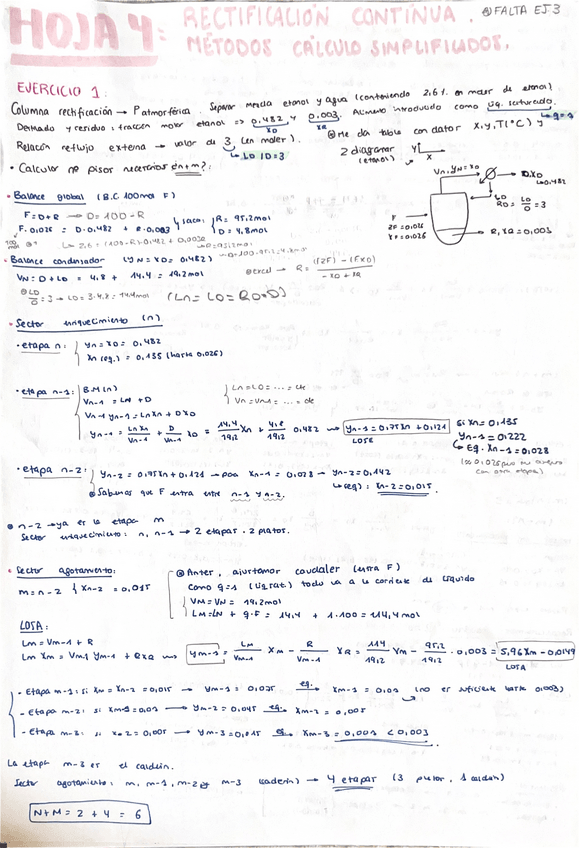 HOJA 4: RECTIFICACIÓN CONTINUA.
MÉTODOS CÁLCULO SIMPLIFICADOS.
FALTA EJ3
EJERCICIO 1:
Columna rectificación → Patmosférica. Separar mezcla etanol y agua (conteniendo 2,6% en moles de etanol)
Destilado y residuo: fracción molar etanol => 0.482 y 0.003. Alimento introducido como líq. saturado.
XD XR q=1
Relación reflujo externa → valor de 3 (en moles).
↳ LO/D=3
Me da tabla con datos X,Y,T(°C) y
2 diagramas
(etanol)
• Calcular nº pisos necesarios
Vn, yN = XD
D, XD
↳0.482
LO
RO = LO/D = 3
F
ZF=0.026
XF=0.026
R, XR=0,003
• Balance global (B.C. 100mol F)
F=D+R → D=100-R
F·0.026 = D·0.482 + R·0.003
R= 95,2mol
D= 4,8mol
• Balance condensador (yN=XD=0,482)
VN= D+LO = 4.8 + 14.4 = 19,2mol
LO/D=3 → LO=3·4.8=14.4mol (Ln=LO=RO·D)
excel → R= (FZF)-(FXD) / -XD+XR
• Sector enriquecimiento (n)
• etapa n: yn=XD=0,482
Xn (eq.) = 0,135 (hasta 0,026)
• etapa n-1: B.M (n)
Vn-1 = Ln+D
Vn-1 yn-1 = LnXn + DXD
Ln=LO= ... = cte
Vn=Vn-1= ... = cte
yn-1 = LnXn/Vn-1 + D/Vn-1 XD = 14,4/19,2 Xn + 4,8/19,2 0.482 → yn-1=0,75Xn+0,121
LOSE
si Xn=0,135
yn-1=0,222
↳ Eq. Xn-1=0,028
• etapa n-2: yn-2=0,75Xn+0,121 → para Xn-1=0.028 → yn-2=0,142
↳ eq: Xn-2=0,015.
Sabemos que F entra entre n-1 y n-2.
n-2 → ya es la etapa m
Sector enriquecimiento: n, n-1 → 2 etapas · 2 platos.
• Sector agotamiento:
m=n-2 { Xn-2=0,015
Antes, ajustamos caudales (entra F)
Como q=1 (líq. sat) todo va a la corriente de líquido
VM=VN= 19,2mol
LM=LN + q·F = 14,4 + 1·100 = 114,4 mol
LOSA:
Lm=Vm-1+R
Lm Xm = Vm-1 ym-1 + RXR → ym-1 = LM/Vm-1 Xm - R/Vm-1 XR = 114/19,2 Xm - 95,2/19,2 · 0.003 = 5,96Xm-0,0149
LOSA
- Etapa m-1: si Xm=Xn-2=0,015 → ym-1=0,075 eq. → Xm-1=0,01 (no es suficiente hasta 0,003)
- Etapa m-2: si Xm-1=0,01 → ym-2=0,045 eq. → Xm-2=0,005
- Etapa m-3: si Xm-2=0,005 → ym-3=0,015 eq. → Xm-3=0,001 < 0,003
La etapa m-3 es el calderín.
Sector agotamiento: m, m-1, m-2 y m-3 (calderín) → 4 etapas (3 pisos, 1 calderín)
N+M = 2 + 4 = 6